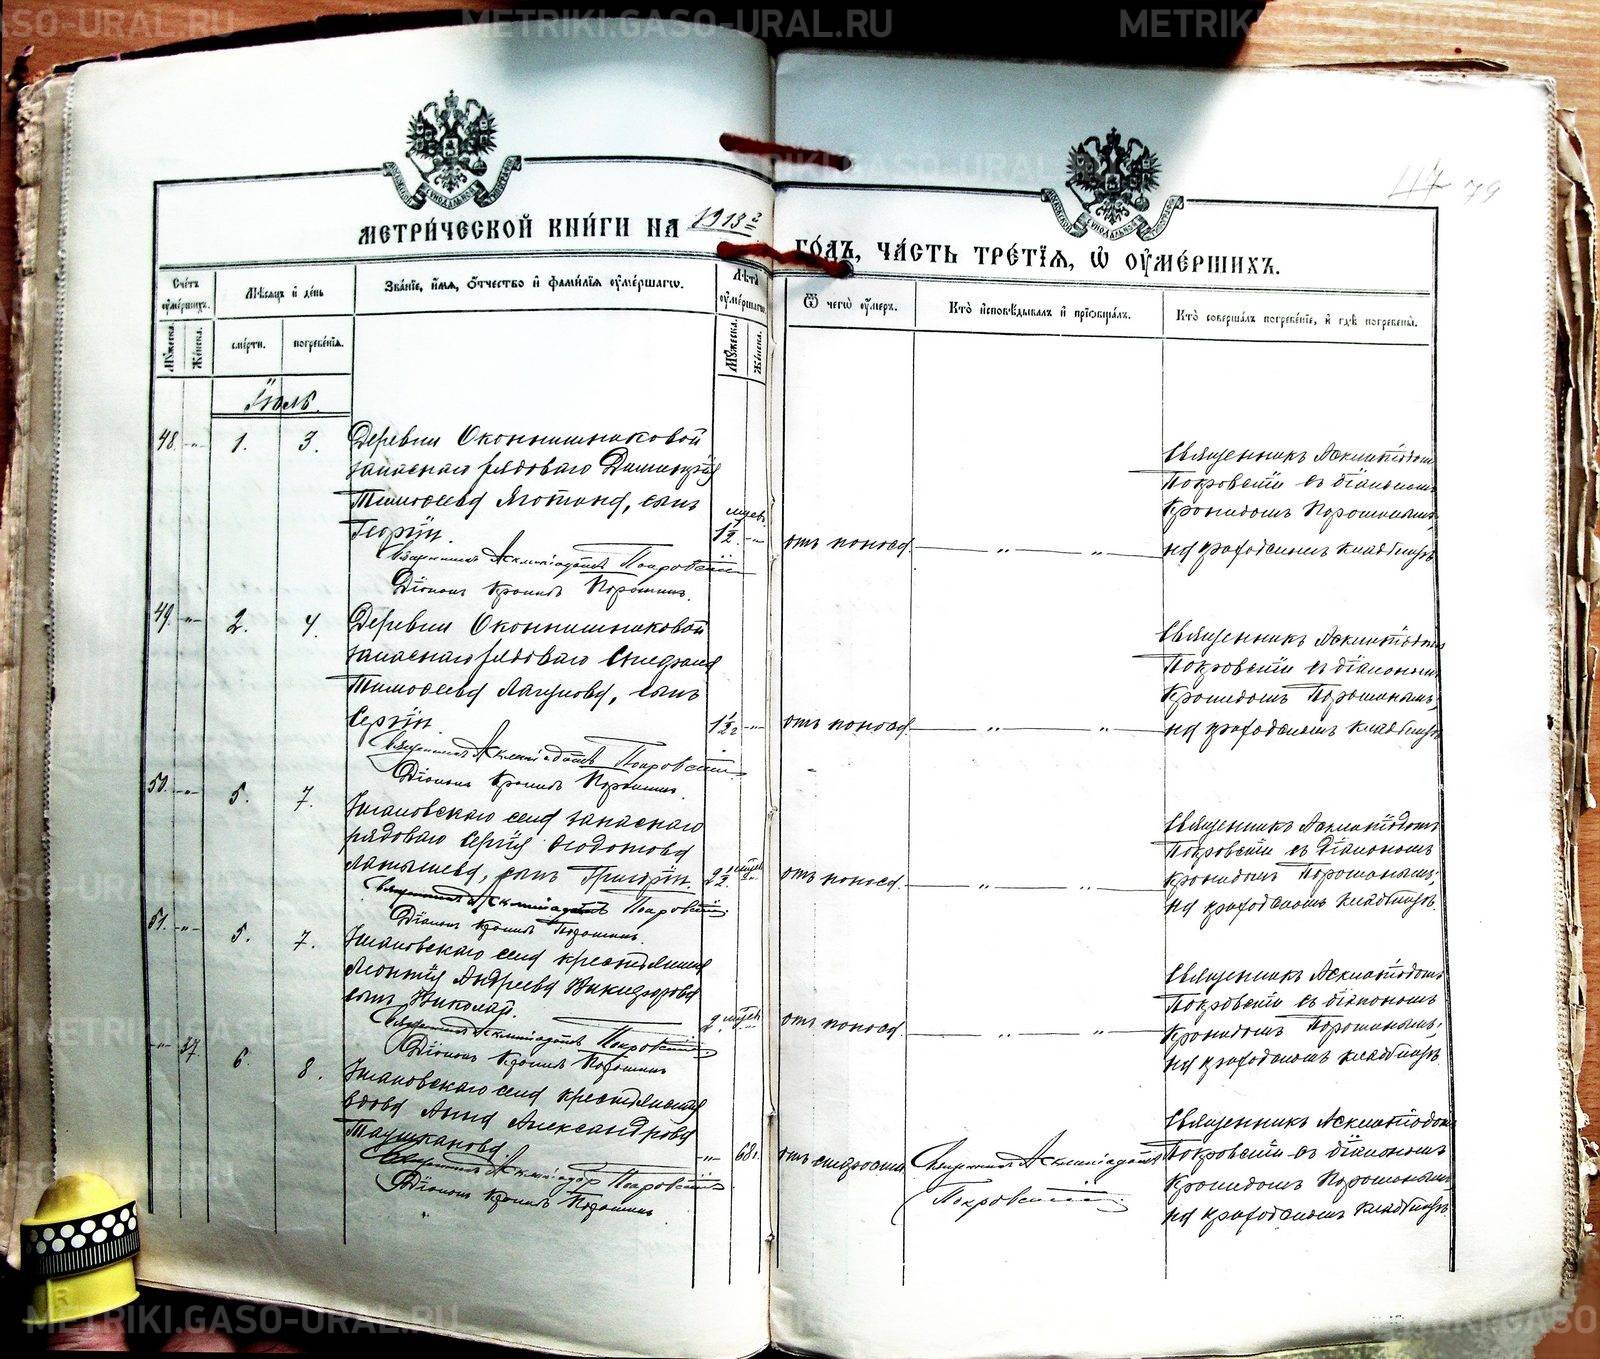 METRIKI.GASO-URAL.RU
117 79
МЕТРИ́ЧЕСКОЙ КНИ́ГИ НА 1913 ГО́ДЪ, ЧА́СТЬ ТРЕ́ТІЯ, Ѡ ОУМЕ́РШИХЪ.
Сче́тъ оуме́ршихъ.
Мꙋ́жеска.
Же́нска.
Мѣ́сяцъ и де́нь
сме́рти.
погребе́нія.
Зва́ніе, и́мя, о́тчество и фами́лія оуме́ршагѡ.
Лѣ́та оуме́ршагѡ.
Мꙋ́жеска.
Же́нска.
Ѿ чегѡ̀ оу́меръ.
Кто̀ и́сповѣдывалъ и пріѡбща́лъ.
Кто̀ соверша́лъ погребе́ніе, и гдѣ̀ погребены̀.
Іюль.
48. -"- 1. 3.
Деревни Оконишниковой
запаснаго рядоваго Димитрія
Тимоѳеева Яготина, сынъ
Георгій.
Священникъ Асклипіодотъ Покровскій
Діаконъ Кронидъ Порошинъ.
мѣс.
1½. -"-
отъ поноса " "
Священникъ Асклипіодотъ
Покровскій съ діакономъ
Кронидомъ Порошинымъ,
на приходскомъ кладбищѣ.
49. -"- 2. 4.
Деревни Оконишниковой
запаснаго рядоваго
Тимоѳеева сынъ
Сергій.
Священникъ Асклипіодотъ Покровскій
Діаконъ Кронидъ Порошинъ.
1½ г. -"-
отъ поноса. " "
Священникъ Асклипіодотъ
Покровскій съ діакономъ
Кронидомъ Порошинымъ,
на приходскомъ кладбищѣ.
50. -"- 5. 7.
села запаснаго
рядоваго Сергія Ѳеодотова
Латышева, сынъ Григорій.
Священникъ Асклипіодотъ Покровскій
Діаконъ Кронидъ Порошинъ.
мѣс.
отъ поноса. " "
Священникъ Асклипіодотъ
Покровскій съ Діакономъ
Кронидомъ Порошинымъ,
на приходскомъ кладбищѣ.
51. -"- 5. 7.
села крестьянина
Леонтія Андреева Никифорова
сынъ Николай.
Священникъ Асклипіодотъ Покровскій
Діаконъ Кронидъ Порошинъ
мѣс.
отъ поноса " "
Священникъ Асклипіодотъ
Покровскій съ діакономъ
Кронидомъ Порошинымъ,
на приходскомъ кладбищѣ.
-"- 37. 6. 8.
села крестьянская
вдова Анна Александрова
Таушканова.
Священникъ Асклипіодотъ Покровскій
Діаконъ Кронидъ Порошинъ
-"- 68 г.
отъ старости
Священникъ Асклипіодотъ
Покровскій
Священникъ Асклипіодотъ
Покровскій съ діакономъ
Кронидомъ Порошинымъ
на приходскомъ кладбищѣ.
METRIKI.GASO-URAL.RU